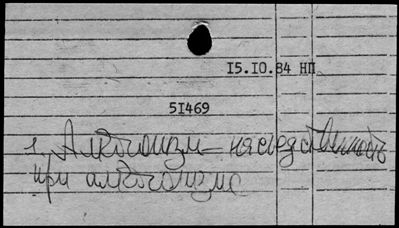 15.10.84 НП
51469
1. Алкоголизм – наследственность
при алкоголизме